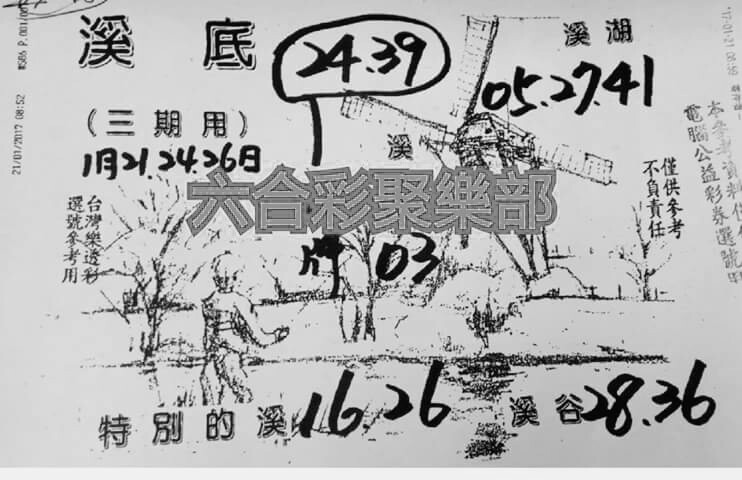 溪底
24.39
溪湖
05.27.41
(三期用)
1月21.24.26日
溪
六合彩聚樂部
牌 03
台灣樂透彩
選號參考用
僅供參考
不負責任
本參考資料僅供
電腦公益彩券選號用
特別的溪 16.26
溪谷 28.36
21/01/2017 08:52